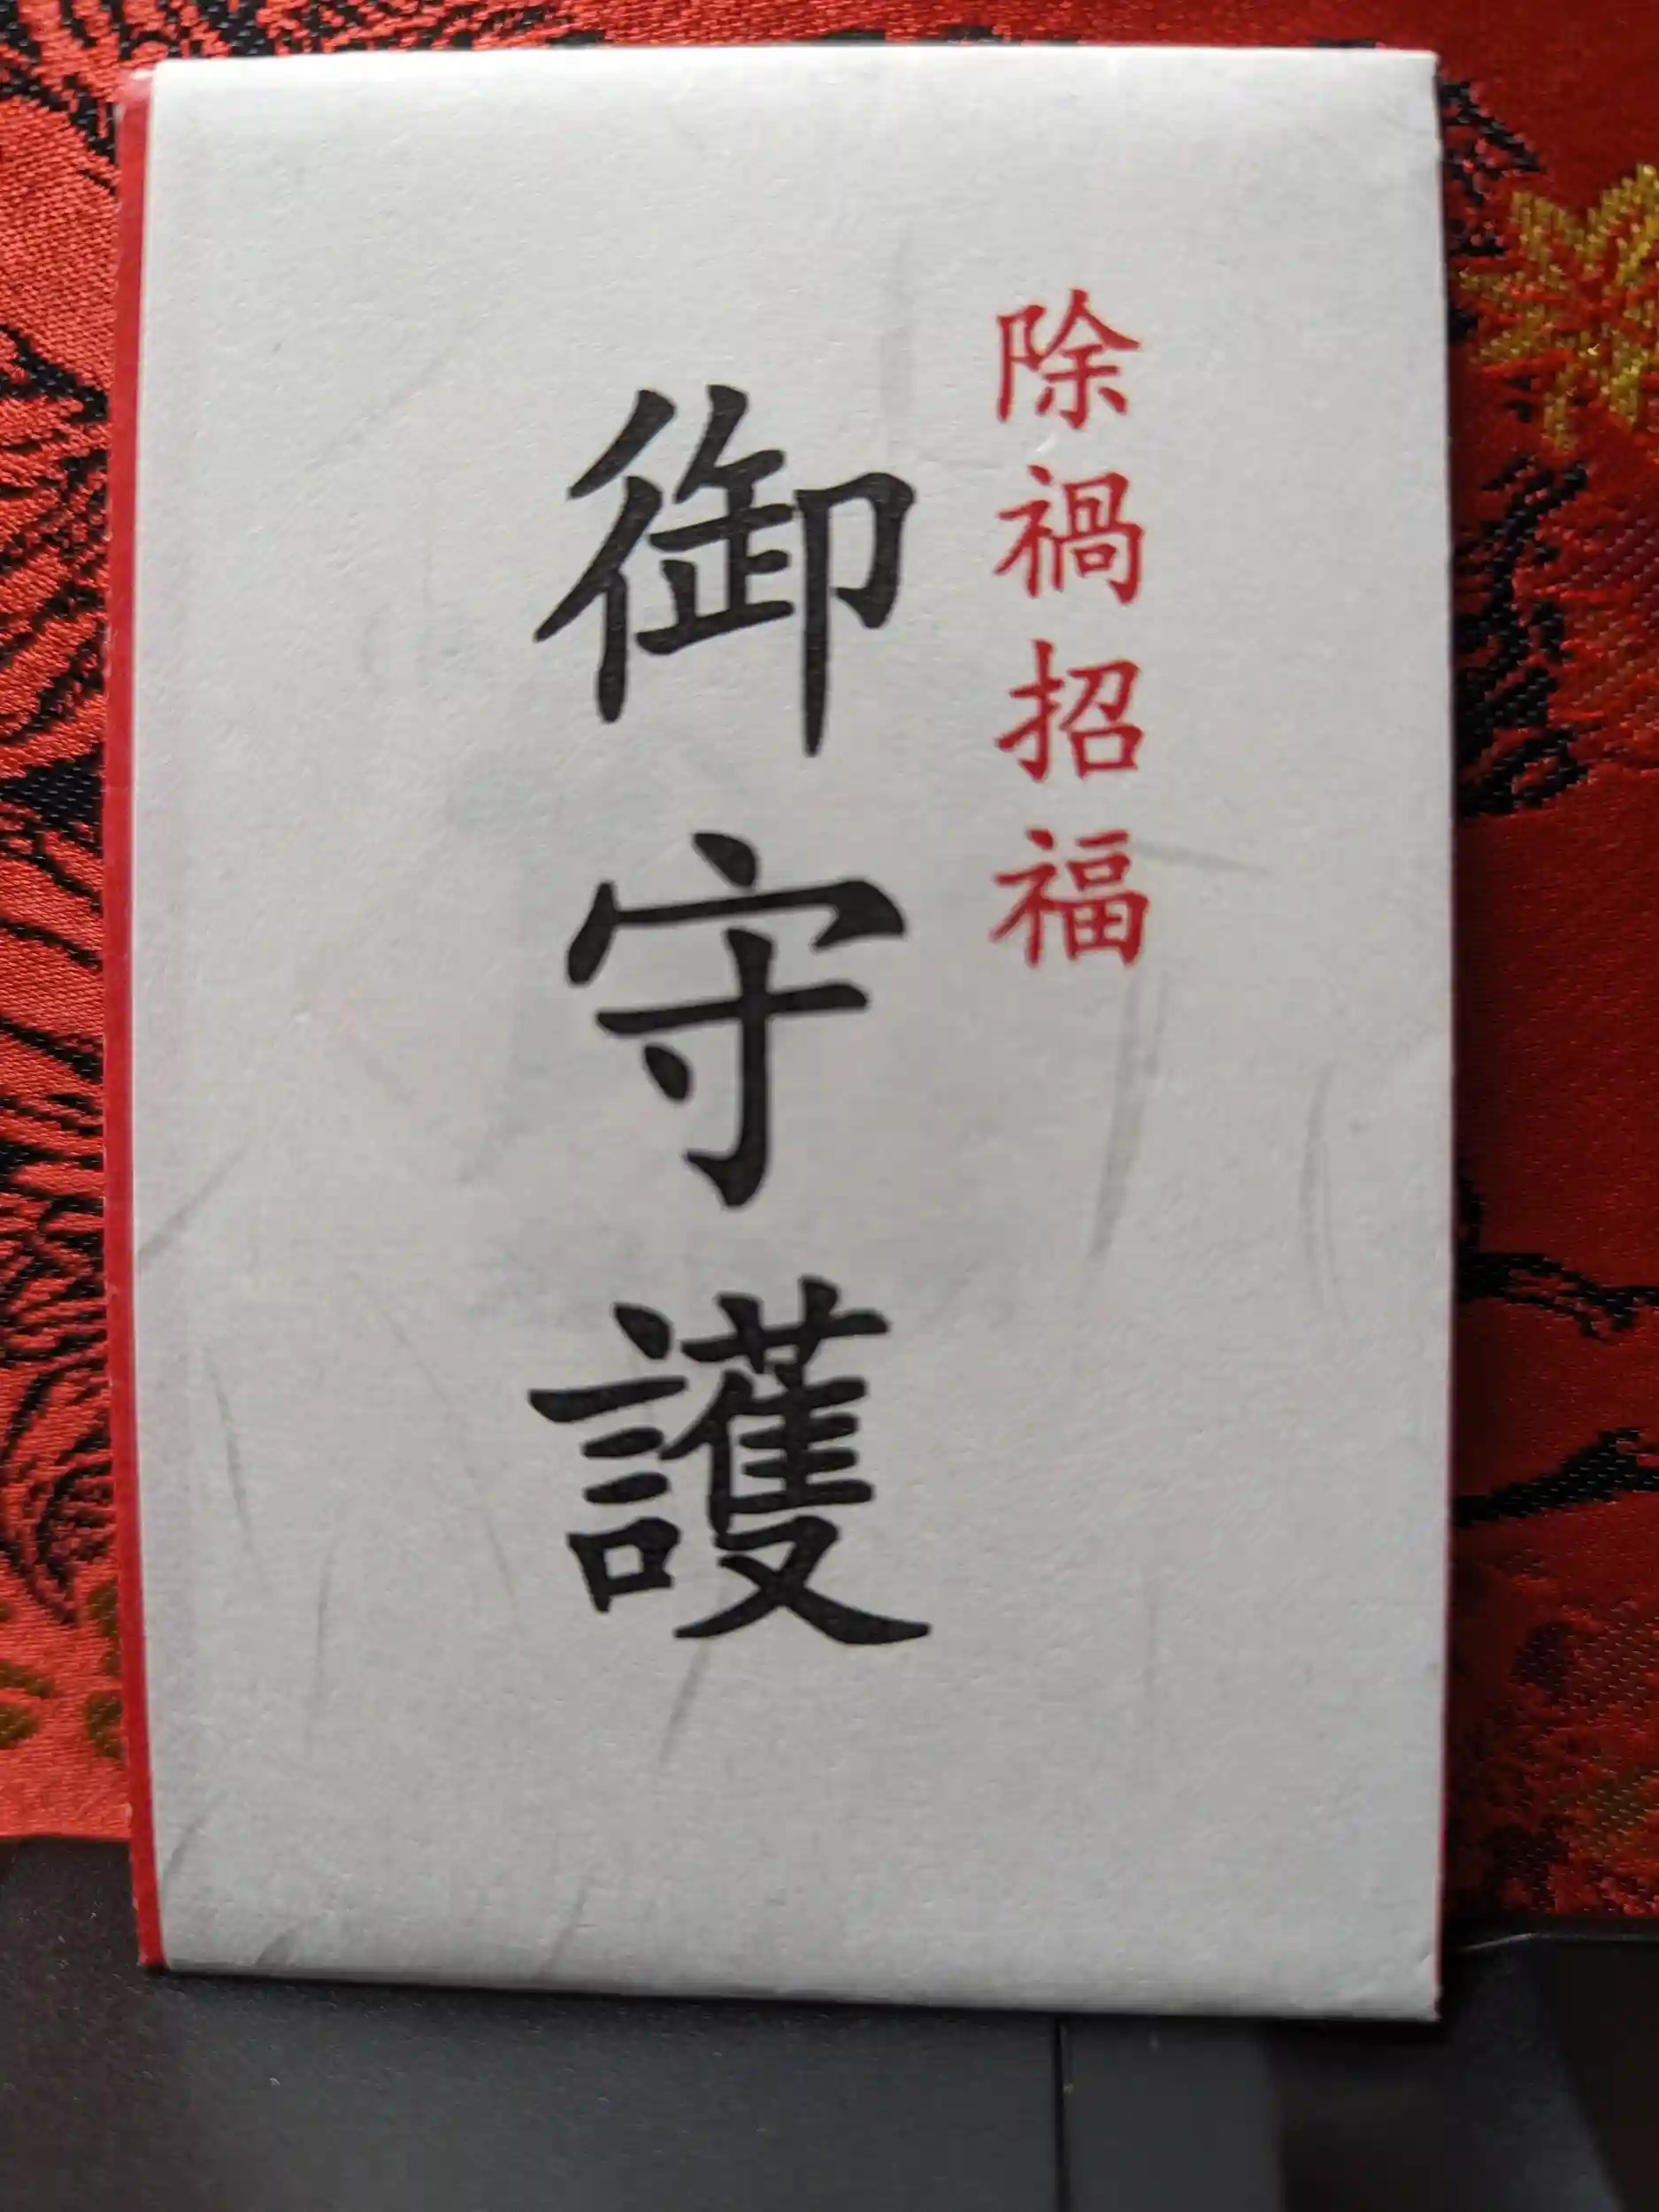 除禍招福
御守護